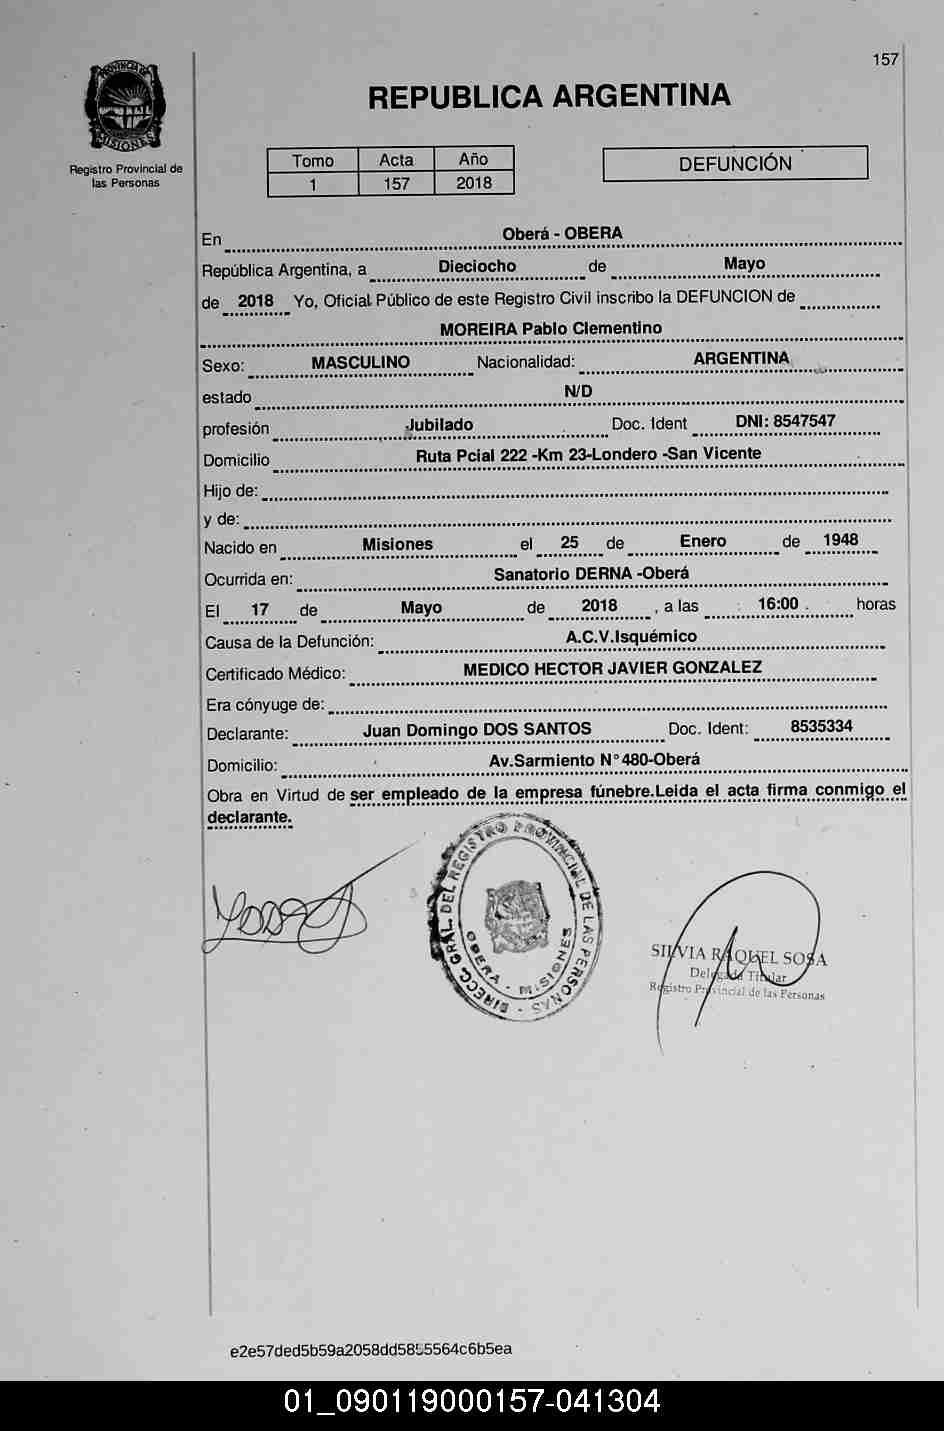 157
PROVINCIA DE
MISIONES
Registro Provincial de
las Personas
REPUBLICA ARGENTINA
Tomo Acta Año
1 157 2018
DEFUNCIÓN
En Oberá - OBERA
República Argentina, a Dieciocho de Mayo
de 2018 Yo, Oficial Público de este Registro Civil inscribo la DEFUNCION de
MOREIRA Pablo Clementino
Sexo: MASCULINO Nacionalidad: ARGENTINA
estado N/D
profesión Jubilado Doc. Ident DNI: 8547547
Domicilio Ruta Pcial 222 -Km 23-Londero -San Vicente
Hijo de:
y de:
Nacido en Misiones el 25 de Enero de 1948
Ocurrida en: Sanatorio DERNA -Oberá
El 17 de Mayo de 2018 , a las 16:00 horas
Causa de la Defunción: A.C.V.Isquémico
Certificado Médico: MEDICO HECTOR JAVIER GONZALEZ
Era cónyuge de:
Declarante: Juan Domingo DOS SANTOS Doc. Ident: 8535334
Domicilio: Av.Sarmiento N°480-Oberá
Obra en Virtud de ser empleado de la empresa fúnebre.Leida el acta firma conmigo el
declarante.
DIRECC. GRAL. DEL REGISTRO PROVINCIAL DE LAS PERSONAS -
OBERA - MISIONES
SILVIA RAQUEL SOSA
Delegada Titular
Registro Provincial de las Personas
01_090119000157-041304